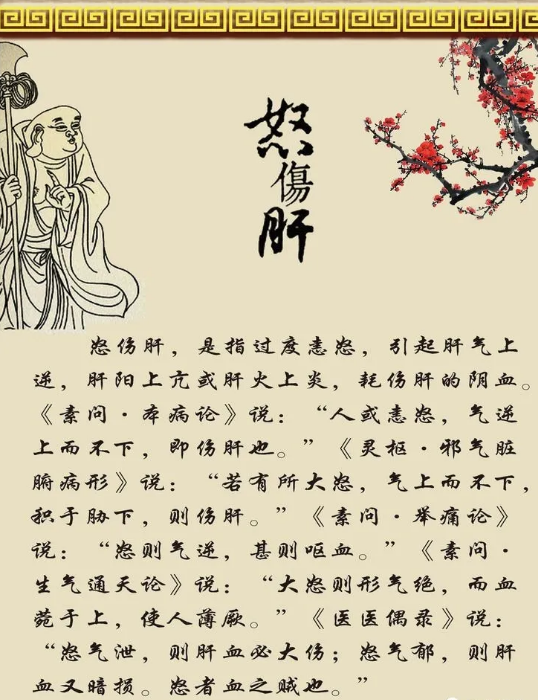 怒
傷
肝
怒伤肝，是指过度恚怒，引起肝气上
逆，肝阳上亢或肝火上炎，耗伤肝的阴血。
《素问·本病论》说：“人或恚怒，气逆
上而不下，即伤肝也。”《灵枢·邪气脏
腑病形》说：“若有所大怒，气上而不下，
积于胁下，则伤肝。”《素问·举痛论》
说：“怒则气逆，甚则呕血。”《素问·
生气通天论》说：“大怒则形气绝，而血
菀于上，使人薄厥。”《医医偶录》说：
“怒气泄，则肝血必大伤；怒气郁，则肝
血又暗损。怒者血之贼也。”